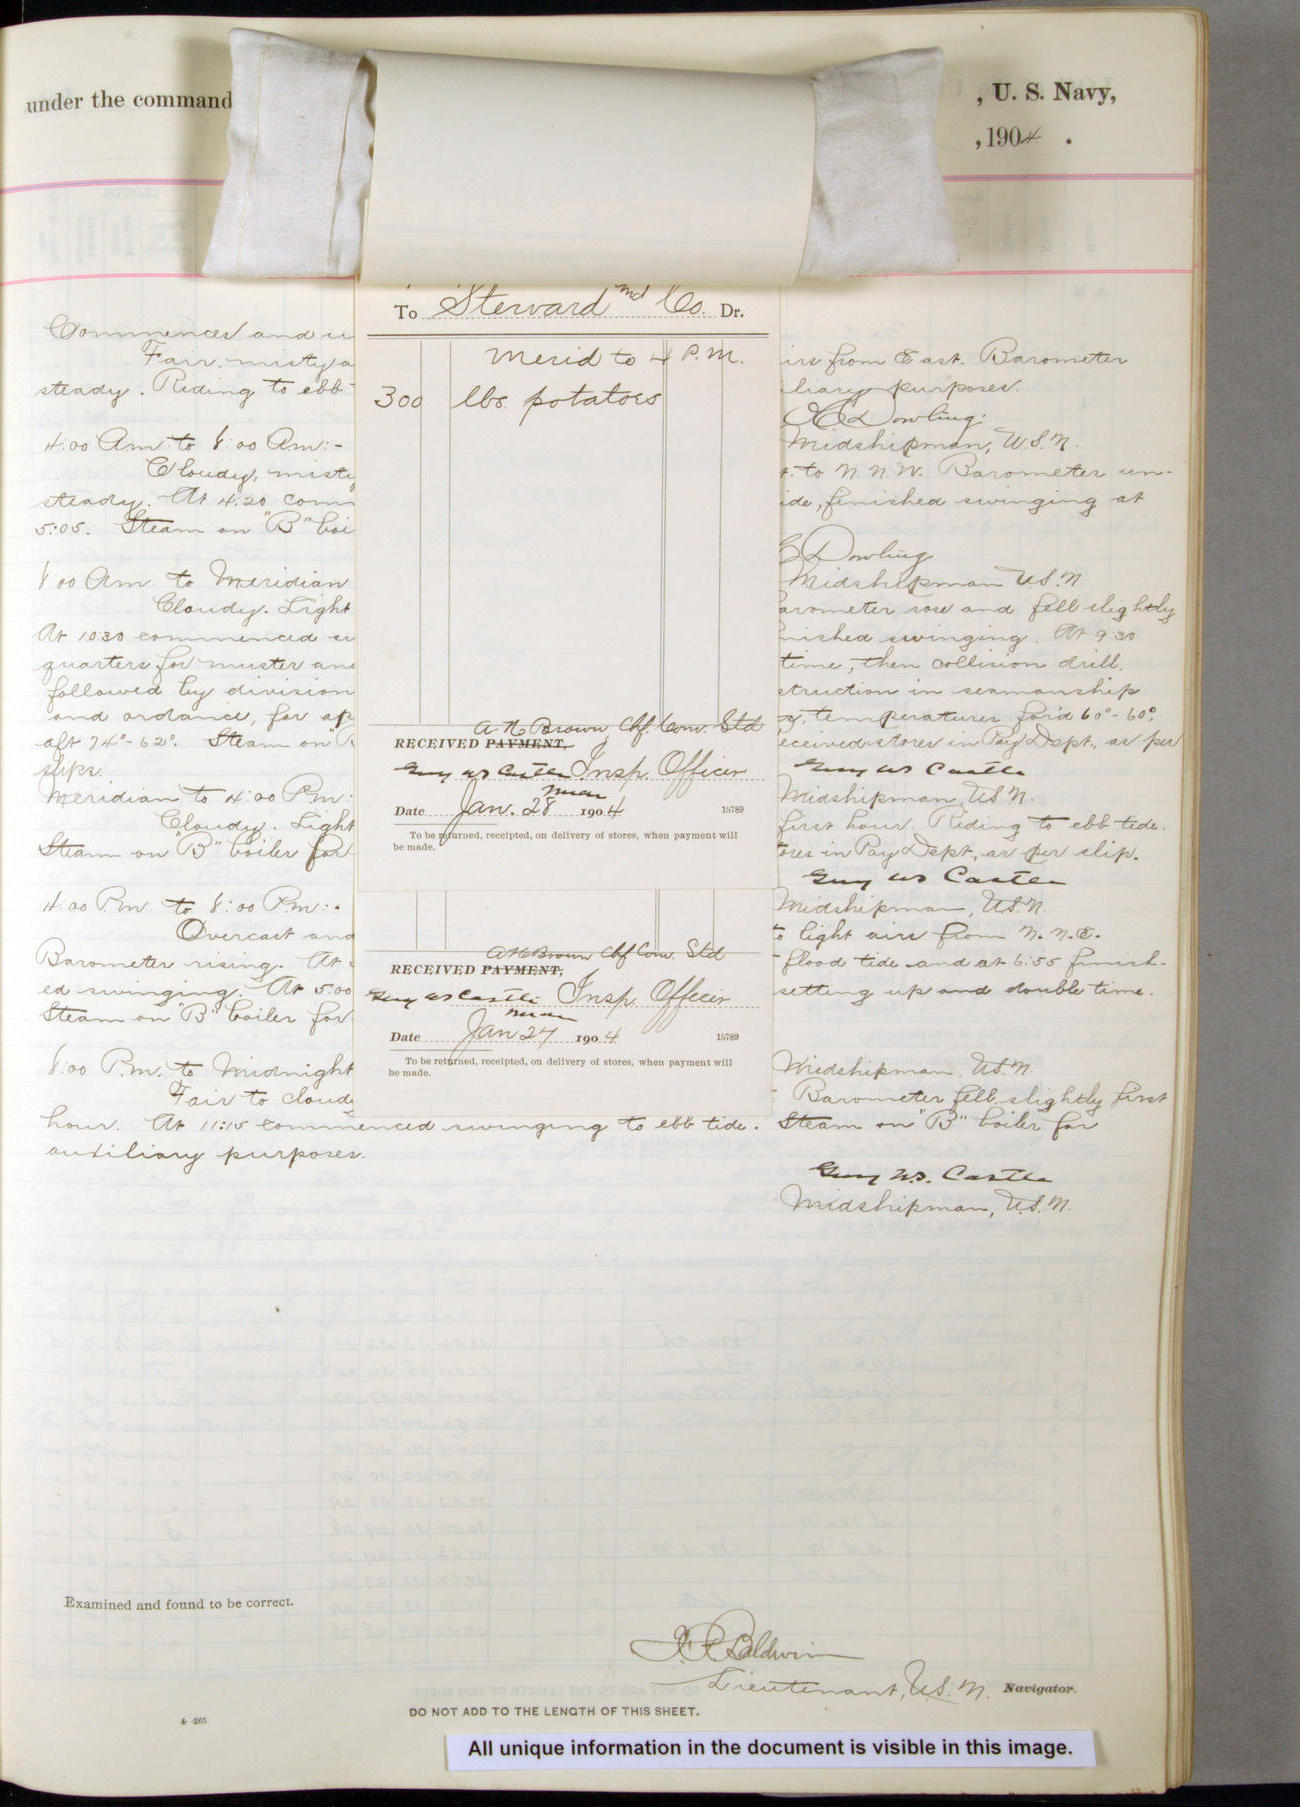 under the command
, U. S. Navy,
, 1904 .
To Steward Md Co. Dr.
Merid to 4 P.M.
300 lbs. potatoes
A H Brown, Chf. Com. Std
RECEIVED PAYMENT,
Guy WS Castle Insp. Officer
Date Jan. 28 1904
15789
To be returned, receipted, on delivery of stores, when payment will
be made.
A H Brown Chf Com. Std
RECEIVED PAYMENT,
Guy WS Castle Insp. Officer
Date Jan 27 1904
15789
To be returned, receipted, on delivery of stores, when payment will
be made.
Commences and
Fair, misty
irs from East. Barometer
steady. Riding to ebb
liary purposes.
Dowling.
4:00 Am to 8:00 Am:-
Midshipman, U.S.N.
Cloudy, misty
to N.N.W. Barometer un-
steady. At 4:20 com
ide, finished swinging at
5:05. Steam on "B" boi
Dowling
8:00 Am to Meridian
Midshipman U.S.N
Cloudy. Light
arometer rose and fell slightly
At 10:30 commenced
nished swinging. At 9:30
quarters for muster and
time, then collision drill,
followed by division
struction in seamanship
and ordance, for
temperatures for'd 60°-60°,
aft 74°-62°. Steam on "B
eceived stores in Pay Dept., as per
slips.
Guy WS Castle
Meridian to 4:00 Pm:
Midshipman, U.S.N.
Cloudy. Light
first hour. Riding to ebb tide.
Steam on "B" boiler for
ores in Pay Dept., as per slip.
Guy WS Castle
4:00 Pm to 8:00 P.m:-
Midshipman, U.S.N.
Overcast and
to light airs from N.N.E.
Barometer rising. At
flood tide and at 6:55 finish-
ed swinging. At 5:00
setting up and double time.
Steam on "B" boiler for
8:00 P.m. to Midnight
Midshipman, U.S.N.
Fair to cloudy
Barometer fell slightly first
hour. At 11:15 commenced swinging to ebb tide. Steam on "B" boiler for
auxiliary purposes.
Guy W.S. Castle
Midshipman, U.S.N.
Examined and found to be correct.
Baldwin
Lieutenant, U.S.N. Navigator.
DO NOT ADD TO THE LENGTH OF THIS SHEET.
4-265
All unique information in the document is visible in this image.